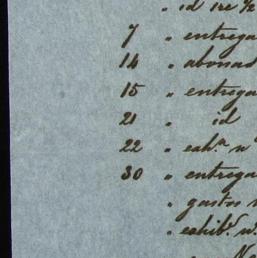 " id
7 " entrega
14 " abonad
15 " entrega
21 " id
22 " exh.n n
30 " entrega
" gastos
" exhib.n n.